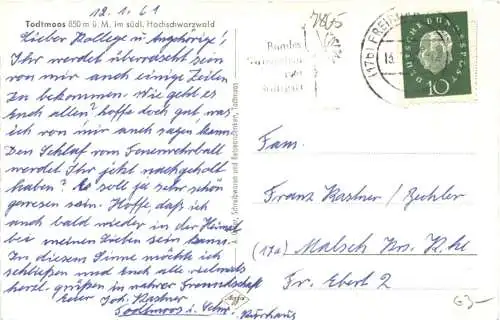 12.1.61
Todtmoos 850 m ü. M. im südl. Hochschwarzwald
Lieber Kollege u Angehörige!
Ihr werdet überrascht sein
von mir auch einige Zeilen
zu bekommen. Wie geht es
Euch allen? hoffe doch gut, was
ich von mir auch sagen kann.
Den Schlaf vom werdet Ihr jetzt nachgeholt
haben? Es soll ja sehr schön
gewesen sein. Hoffe, daß ich
auch bald wieder in der Heimat
bei meinen Lieben sein kann.
In diesem Sinne möchte ich
schließen und Euch alle vielmals
herzl. grüßen in nahrer Freundschaft
Euer Joh. Kastner
Todtmoos i. Schw.
Kurhaus
Schreibwaren und Reiseandenken, Todtmoos
(17b) FREI
Bundes
Stuttgart
DEUTSCHE BUNDESPOST
10
Fam.
Franz Kastner / Bechler
(17a) Malsch Krs. K.he
Fr. Ebert 2
G3-